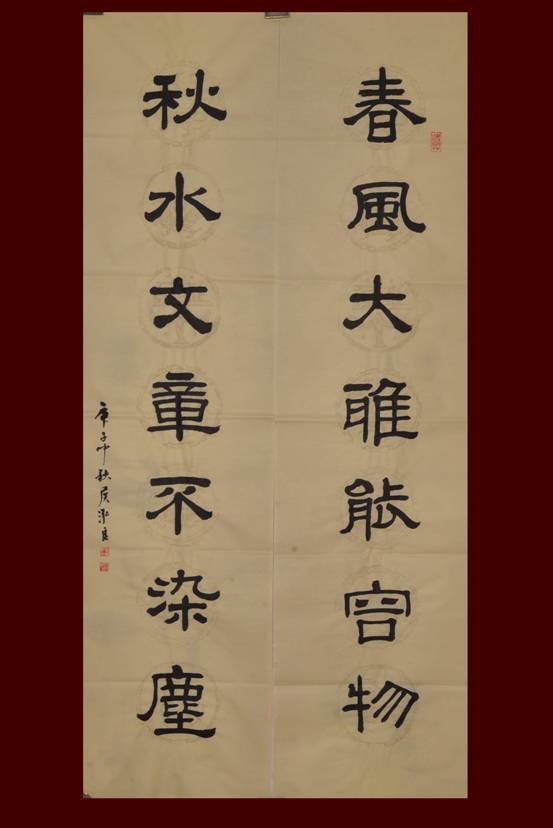 春風大雅能容物
秋水文章不染塵
庚子仲秋